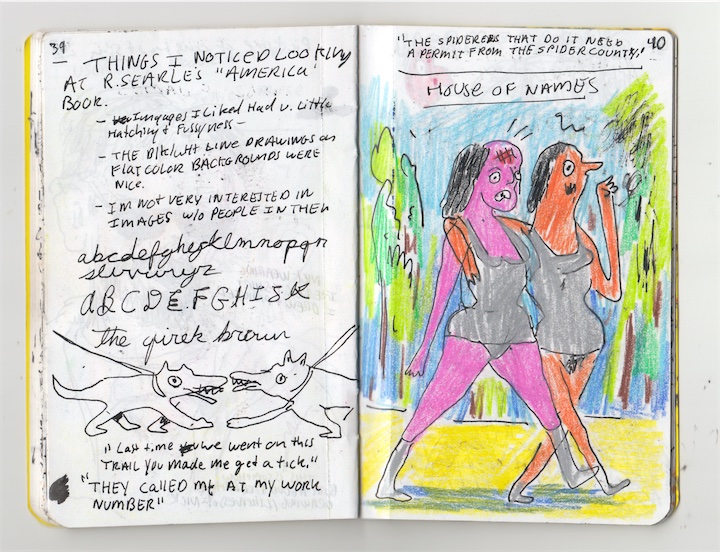 39
THINGS I NOTICED LOOKING
AT R. SEARLE'S "AMERICA"
BOOK.
- Imgages I liked Had v. little
Hatching & Fussyness -
- THE Blk/wht LINE DRAWINGS on
FLAT COLOR BACKGROUNDS WERE
NICE.
- I'm NOT VERY INTERESTED IN
IMAGES w/o PEOPLE IN THEM
abcdefghijklmnopqr
stuvwxyz
ABCDEFGHIJK
the quick brown
"Last time we went on this
TRAIL you made me get a tick."
"THEY CALLED ME AT MY WORK
NUMBER"
"THE SPIDERERS THAT DO IT NEED
A PERMIT FROM THE SPIDER COUNTY,"
40
HOUSE OF NAMES